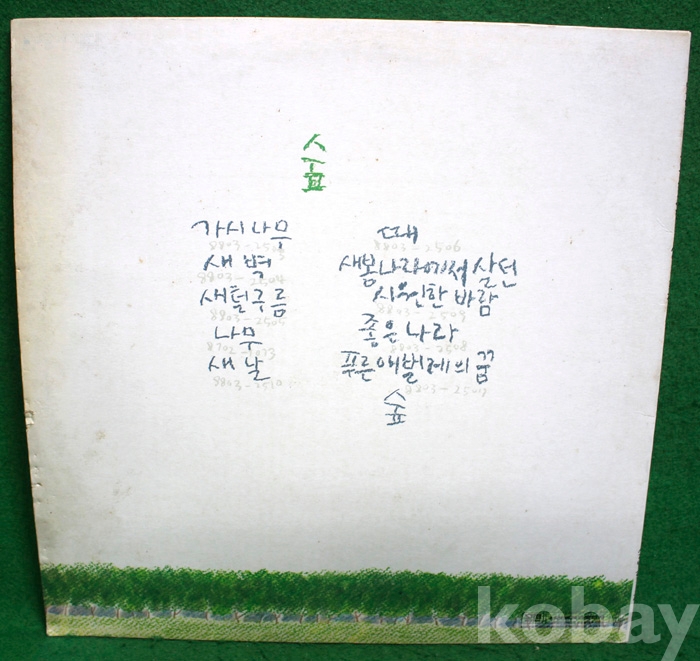 숲
가시나무
새벽
8803-2504
새털구름
나무
새날
8803-2510
때
8803-2506
새봄나라에서 살던
시원한 바람
8803-2509
좋은 나라
8803-2508
푸른 애벌레의 꿈
8803-2507
숲
kobay